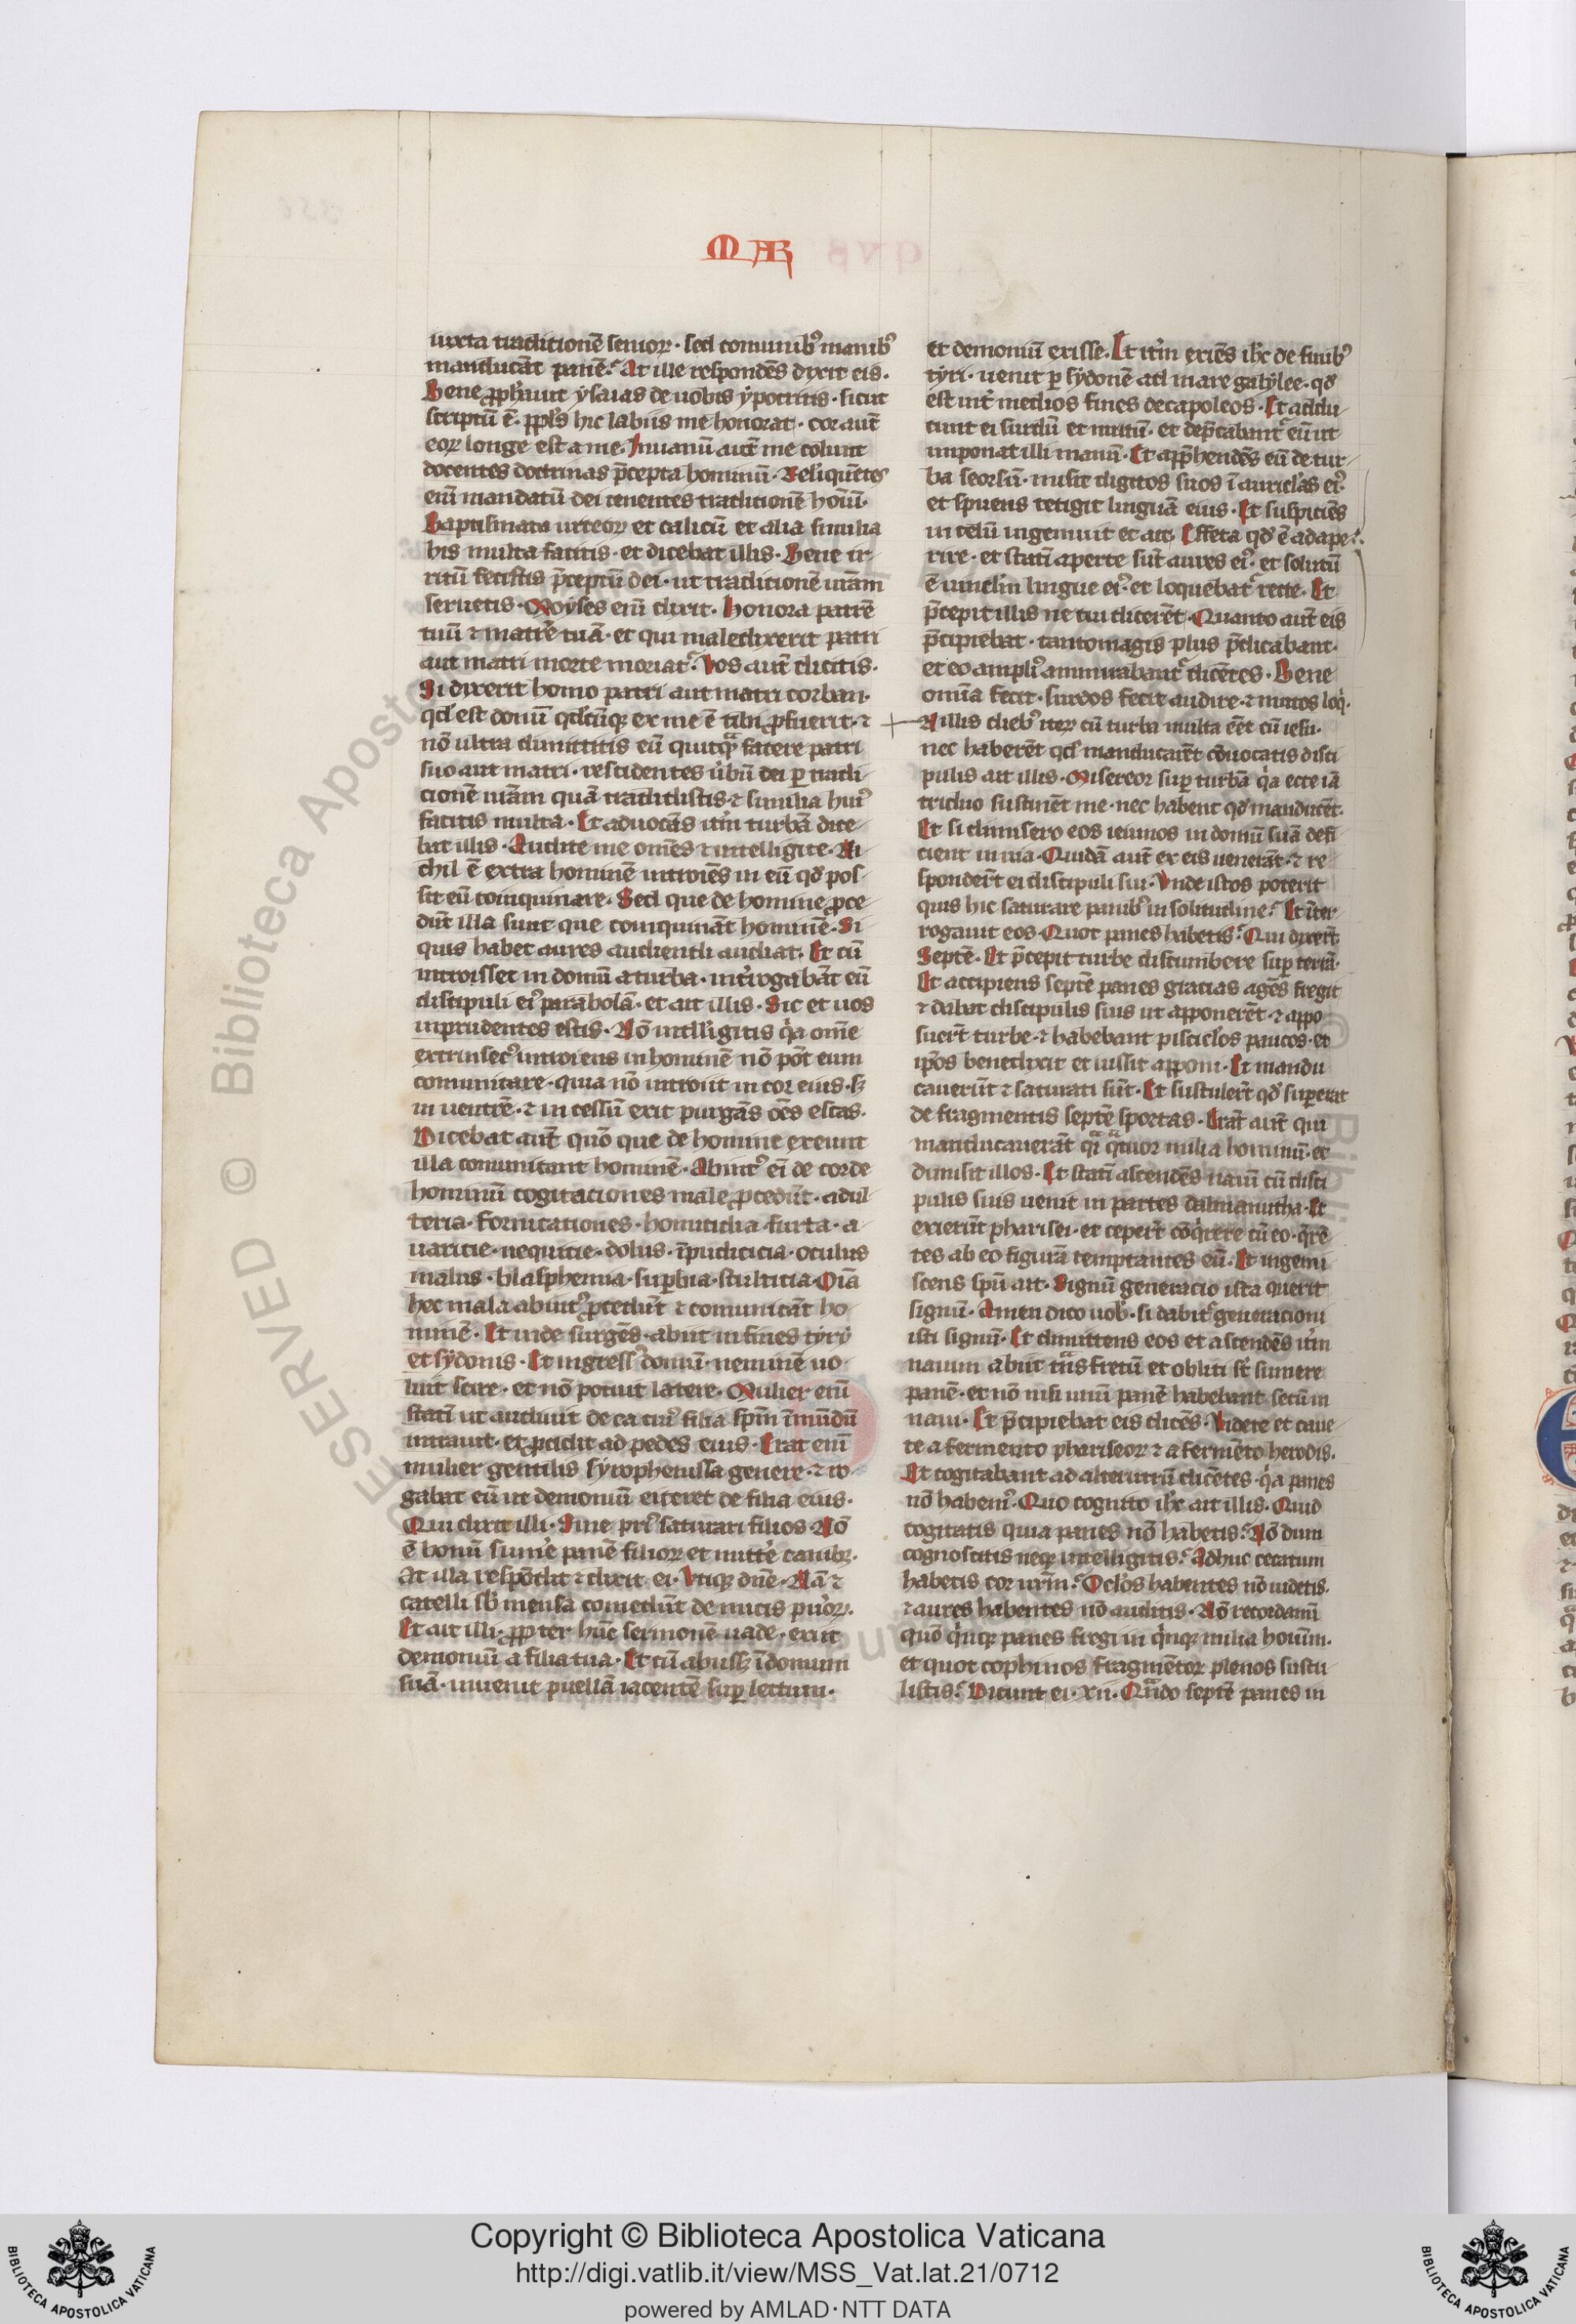 MAR
iuxta traditionē senioꝝ · sed comunibꝰ manibꝰ
manducāt panē? At ille respondēs dyxit eis ·
Bene ꝓphauit ysaias de uobis ypocritis · sicut
scriptū ē · ppl's hic labiis me honorat · cor aut̄
eoꝝ longe est a me · Inuanū aut̄ me colunt
docentes doctrinas p̄cepta hominū · Relīquētes
eni mandatū dei tenentes traditionē hoīū ·
Baptismata urceoꝝ et calicū et alia similia
his multa facitis · et dicebat illis · Bene ir-
ritū fecistis p̄ceptū dei · ut traditionē urām
seruetis · Moyses eni dixit · Honora patrē
tuū ⁊ matrē tuā · et qui maledixerit patri
aut matri morte moriat᷑ · Vos aut̄ dicitis ·
Si dyxerit homo patri aut matri corban ·
qd' est donū qd'cūqꝫ ex me ē tibi ꝓfuerit · ⁊
nō ultra dimittitis eū quicqͣ facere patri
suo aut matri · rescidentes u̇bū dei ꝑ tradi-
cionē urām quā tradidistis · ⁊ similia huiꝰ
facitis multa · Et aduocās it̄m turbā dice-
bat illis · Audite me omēs ⁊ intelligite · Ni-
chil ē extra hominē introiēs in eū qd' pos-
sit eū coinquinare · Sed que de homine ꝓce
dūt illa sunt que coinquināt hominē · Si
quis habet aures audiendi audiat · Et cū
introisset in domū a turba · int̄rogabāt eū
discipuli eiꝰ parabolā · et ait illis · Sic et uos
inprudentes estis · Nō intll'igitis q̇a om̄e
extrinsecꝰ introiens in hominē nō pōt eum
comunicare · quia nō introit in cor eius · sꝫ
in uentrē · ⁊ in cessū exit purgās oēs escas ·
Dicebat aut̄ quō que de homine exeunt
illa comunicant hominē · Abintꝰ ei de corde
hominū cogitaciones male ꝓcedūt · adul-
teria · fornicationes · homicidia · furta · a-
uaricie · nequicie · dolus · īpudicicia · oculus
malus · blasphemia · suꝑbia · stulticia · Oīa
hec mala abintꝰ ꝓcedūt ⁊ comunicāt ho-
minē · Et inde surgēs · abiit in fines tyry
et sydonis · Et ingressꝰ domū · neminē uo-
luit scire · et nō potuit latere · Mulier eni
statī ut audiuit de ea cuiꝰ filia sp̄m īmūdū
intrauit · et ꝓcidit ad pedes eius · Erat eni
mulier gentilis syrophenissa genere · ⁊ ro-
gabat eū ut demoniū eiceret de filia eius ·
Qui dixit illi · Sine priꝰ saturari filios · Nō
ē bonū sumē panē filioꝝ et mittē canibꝫ ·
At illa respōdit ⁊ dixit ei · Vtiqꝫ dn̄e · Nā ⁊
catelli sb' mensa comedūt de micis pu̇oꝝ ·
Et ait illi · ꝓpter hūc sermonē uade · exiit
demoniū a filia tua · Et cū abiissꝫ ī domum
suā · inuenit puellā iacentē suꝑ lectum ·
et demoniū exisse · Et it̄m exiēs ihc̄ de finibꝰ
tyri · uenit ꝑ sydonē ad mare galylee · qd'
est int̄ medios fines decapoleos · Et addu-
cunt ei surdū et mutū · et dep̄cabant᷑ eū ut
imponat illi manū · Et app̄hendēs eū de tur-
ba seorsū · misit digitos suos ī auric'las eiꝰ ·
et spuens tetigit linguā eius · Et suspiciēs
in celū ingemuit et ait · Effeta qd' ē adape-
rire · et statī aperte sūt aures eiꝰ · et solutū
ē uinc'lm lingue eiꝰ · et loquebat᷑ recte · Et
p̄cepit illis ne cui dicerēt · Quanto aut̄ eis
p̄cipiebat · tanto magis plus p̄dicabant ·
et eo ampliꝰ ammirabant᷑ dicētes · Bene
omīa fecit · surdos fecit audire · ⁊ mutos loq̇ ·
Nillis diebꝰ iteꝝ cū turba multa eēt cū iesu ·
nec haberēt qd' manducarēt cōuocatis disci
pulis ait illis · Misereor suꝑ turbā q̇a ecce iā
triduo sustinēt me · nec habent qd' manducēt ·
Et si dimisero eos ieiunos in domū suā defi
cient in uia · Quidā aut̄ ex eis uenerāt · ⁊ re
sponder̄t ei discipuli sui · Vnde istos poterit
quis hic saturare panibꝰ in solitudine? Et īter-
rogauit eos · Quot panes habetis? Qui dyxer̄t
Septē · Et p̄cepit turbe discumbere suꝑ terrā ·
Et accipiens septē panes gracias agēs fregit
⁊ dabat discipulis suis ut apponerēt · ⁊ appo
suer̄t turbe · ⁊ habebant piscic'los paucos · et
ip̄os benedixit et iussit apponi · Et mandu
cauerūt ⁊ saturati sūt · Et sustuler̄t qd' suꝑerat
de fragmentis septē sportas · Erāt aut̄ qui
manducauerāt q̇i qͣtuor milia hominū · et
dimisit illos · Et statī ascendēs nauī cū disci
pulis suis uenit in partes dalmanutha · Et
exierūt pharisei · et ceper̄t cōq̇rere cū eo · q̄rē
tes ab eo signū temptantes eū · Et ingemi
scens sp̄u ait · Signū generacio ista querit
signū · Amen dico uob' · si dabit᷑ generacioni
isti signū · Et dimittens eos et ascendēs it̄m
nauim abiit tn̄s fretū et obliti st̄ sumere
panē · et nō nisi unū panē habebant secū in
naui · Et p̄cipiebat eis dicēs · Videte et caue
te a fermento phariseoꝝ ⁊ a fermēto herodis ·
Et cogitabant ad alterutrū dicētes · q̇a panes
nō habemꝰ · Quo cognito ihc̄ ait illis · Quid
cogitatis quia panes nō habetis? Nō dum
cognoscitis neqꝫ intelligitis? Adhuc cecatum
habetis cor ur̄m? Oc'los habentes nō uidetis ·
⁊ aures habentes nō auditis · Nō recordami
quō q̇nqꝫ panes fregi in q̇nqꝫ milia hoīum ·
et quot cophinos fragmētoꝝ plenos sustu
listis? Dicunt ei · xii · Qn̄do septē panes in
Copyright © Biblioteca Apostolica Vaticana
http://digi.vatlib.it/view/MSS_Vat.lat.21/0712
powered by AMLAD·NTT DATA
BIBLIOTECA APOSTOLICA VATICANA
BIBLIOTECA APOSTOLICA VATICANA